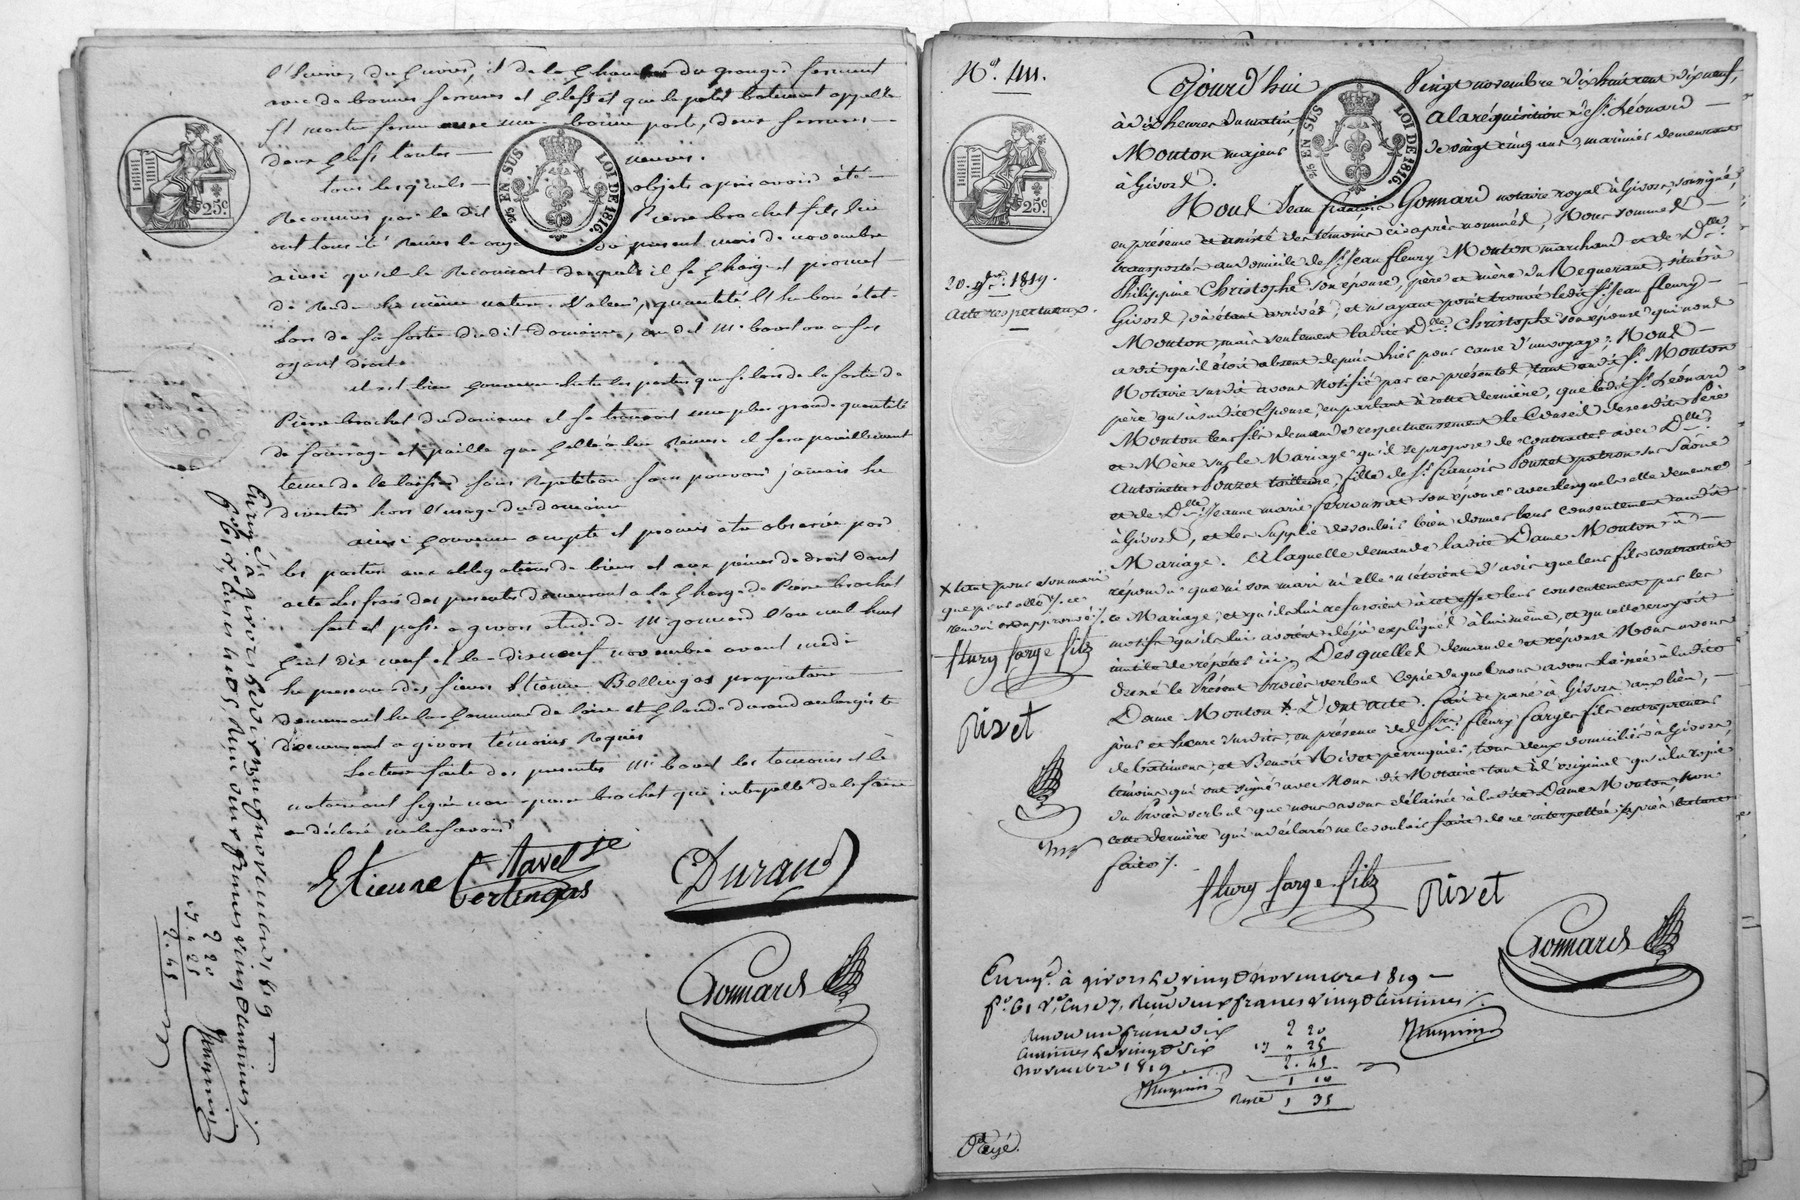 l'écurie, du cuvier, et de la chambre du grangé fermant
avec de bonnes serrures et clefs et que le petit batiment appellé
St martin ferme avec une bonne porte, deux serrures,
deux clefs toutes neuves.
tous lesquels objets après avoir été
Reconnus par le dit Pierre brochet fils, lui
ont tous été Remis le onze du présent mois de novembre
ainsi qu'il le Reconnait desquels il se charge et promet
de Rendre les même nature, valeur, quantité et en bon état
lors de sa sortie dudit domaine, au dit Mr
ayant droits.
il est bien convenu entre les parties que si lors de la sortie de
Pierre brochet du domaine il se trouvait une plus grande quantité
de fourrage et paille que celle à lui Remise il sera pareillement
tenu de le laisser sans Repetition sans pouvoir jamais les
divertir hors l'usage du domaine
ainsi convenu accepté et promis être observé par
les parties aux obligations de biens et aux peines de droit dont
acte les frais des presentes demeurent à la charge de Pierre brochet
fait et passé a givors étude de Me gonnard l'an mil huit
cent dix neuf et le dix neuf novembre avant midi
en presence des sieurs Etienne Bertingas proprietaire
demeurant en la commune de loire et Claude durand aubergiste
demeurant a givors témoins Requis
Lecture faite des presentes les temoins et le
notaire ont signé non pierre brochet qui interpellé de le faire
a déclaré ne le savoir
Etienne Bertingas
Durand
Gonnard
Enregé à givors le vingt novembre 1819
Reçu deux francs vingt centimes
2 20
19 " 25
2. 45
25c
EN SUS
LOI DE 1816.
No. 411.
25c
EN SUS
LOI DE 1816.
20. 9bre. 1819.
acte respectueux.
Cejourd'hui vingt novembre dix huit cent dix neuf,
à dix heures du matin à la réquisition de Sr. Léonard
Mouton majeur de vingt cinq ans, marinier demeurant
à Givors.
Nous Jean françois Gonnard notaire royal à Givors, soussigné,
en présence et assisté des témoins ci après nommés, Nous sommes
transportés au domicile de Sr. Jean fleury Mouton marchand et de Dlle.
Philippine Christophe son épouse, père et mère du Requerant, situé à
Givors, où étant arrivés, et n'y ayant point trouvé ledit Sr. Jean fleury
Mouton, mais seulement ladite Dlle. Christophe son épouse qui nous
a dit qu'il étoit absent depuis hier pour cause d'un voyage; Nous
Notaire susdit avons Notifié par ces présentes tant audit Sr. Mouton
père qu'à sadite épouse, en parlant à cette dernière, que ledit Sr. Léonard
Mouton leur fils demande respectueusement le Conseil de sesdits Père
et Mère sur le Mariage qu'il se propose de contracter avec Dlle.
Antoinette Pouzet tailleuse, fille de Sr. françois Pouzet patron sur Saône
et de Dlle. Jeanne marie ferroussat son épouse avec lesquels elle demeure
à Givors, et les Supplie de vouloir bien donner leur consentement audit
Mariage. A laquelle demande ladite Dame Mouton a
répondu que ni son mari ni elle n'étoient d'avis que leur fils contractât
ce Mariage, et qu'ils lui refusoient à cet effet leur consentement par les
motifs qu'ils lui avoient déjà expliqués à lui même, et qu'elle croyoit
inutile de répéter ici. Desquelles demande et réponse Nous avons
dressé le Présent Procès verbal copie duquel nous avons laissée à ladite
Dame Mouton x. Dont acte. fait et passé à Givors aux lieu,
jour et heure susdits, en présence des Srs. fleury farge fils entrepreneur
de batimens, et Benoit Rivet perruquier, tous deux domiciliés à Givors,
témoins qui ont signé avec Nous dit Notaire tant à l'original qu'à la copie
du Procès verbal que nous avons délaissée à ladite Dame Mouton, non
cette dernière qui a déclaré ne le vouloir faire de ce interpellée après lecture
faite ./.
x tant pour son mari
que pour elle ./. ce
renvoi est approuvé ./.
fleury farge fils
Rivet
fleury farge fils Rivet
Gonnard
Enregé. à givors le vingt novembre 1819
fo. 61 Vo. Reçu deux francs vingt centimes ./.
Rendu un franc dix
centimes le vingt six
novembre 1819
2 20
19 " 25
2. 45
1 10
Reste 1 35
Payé